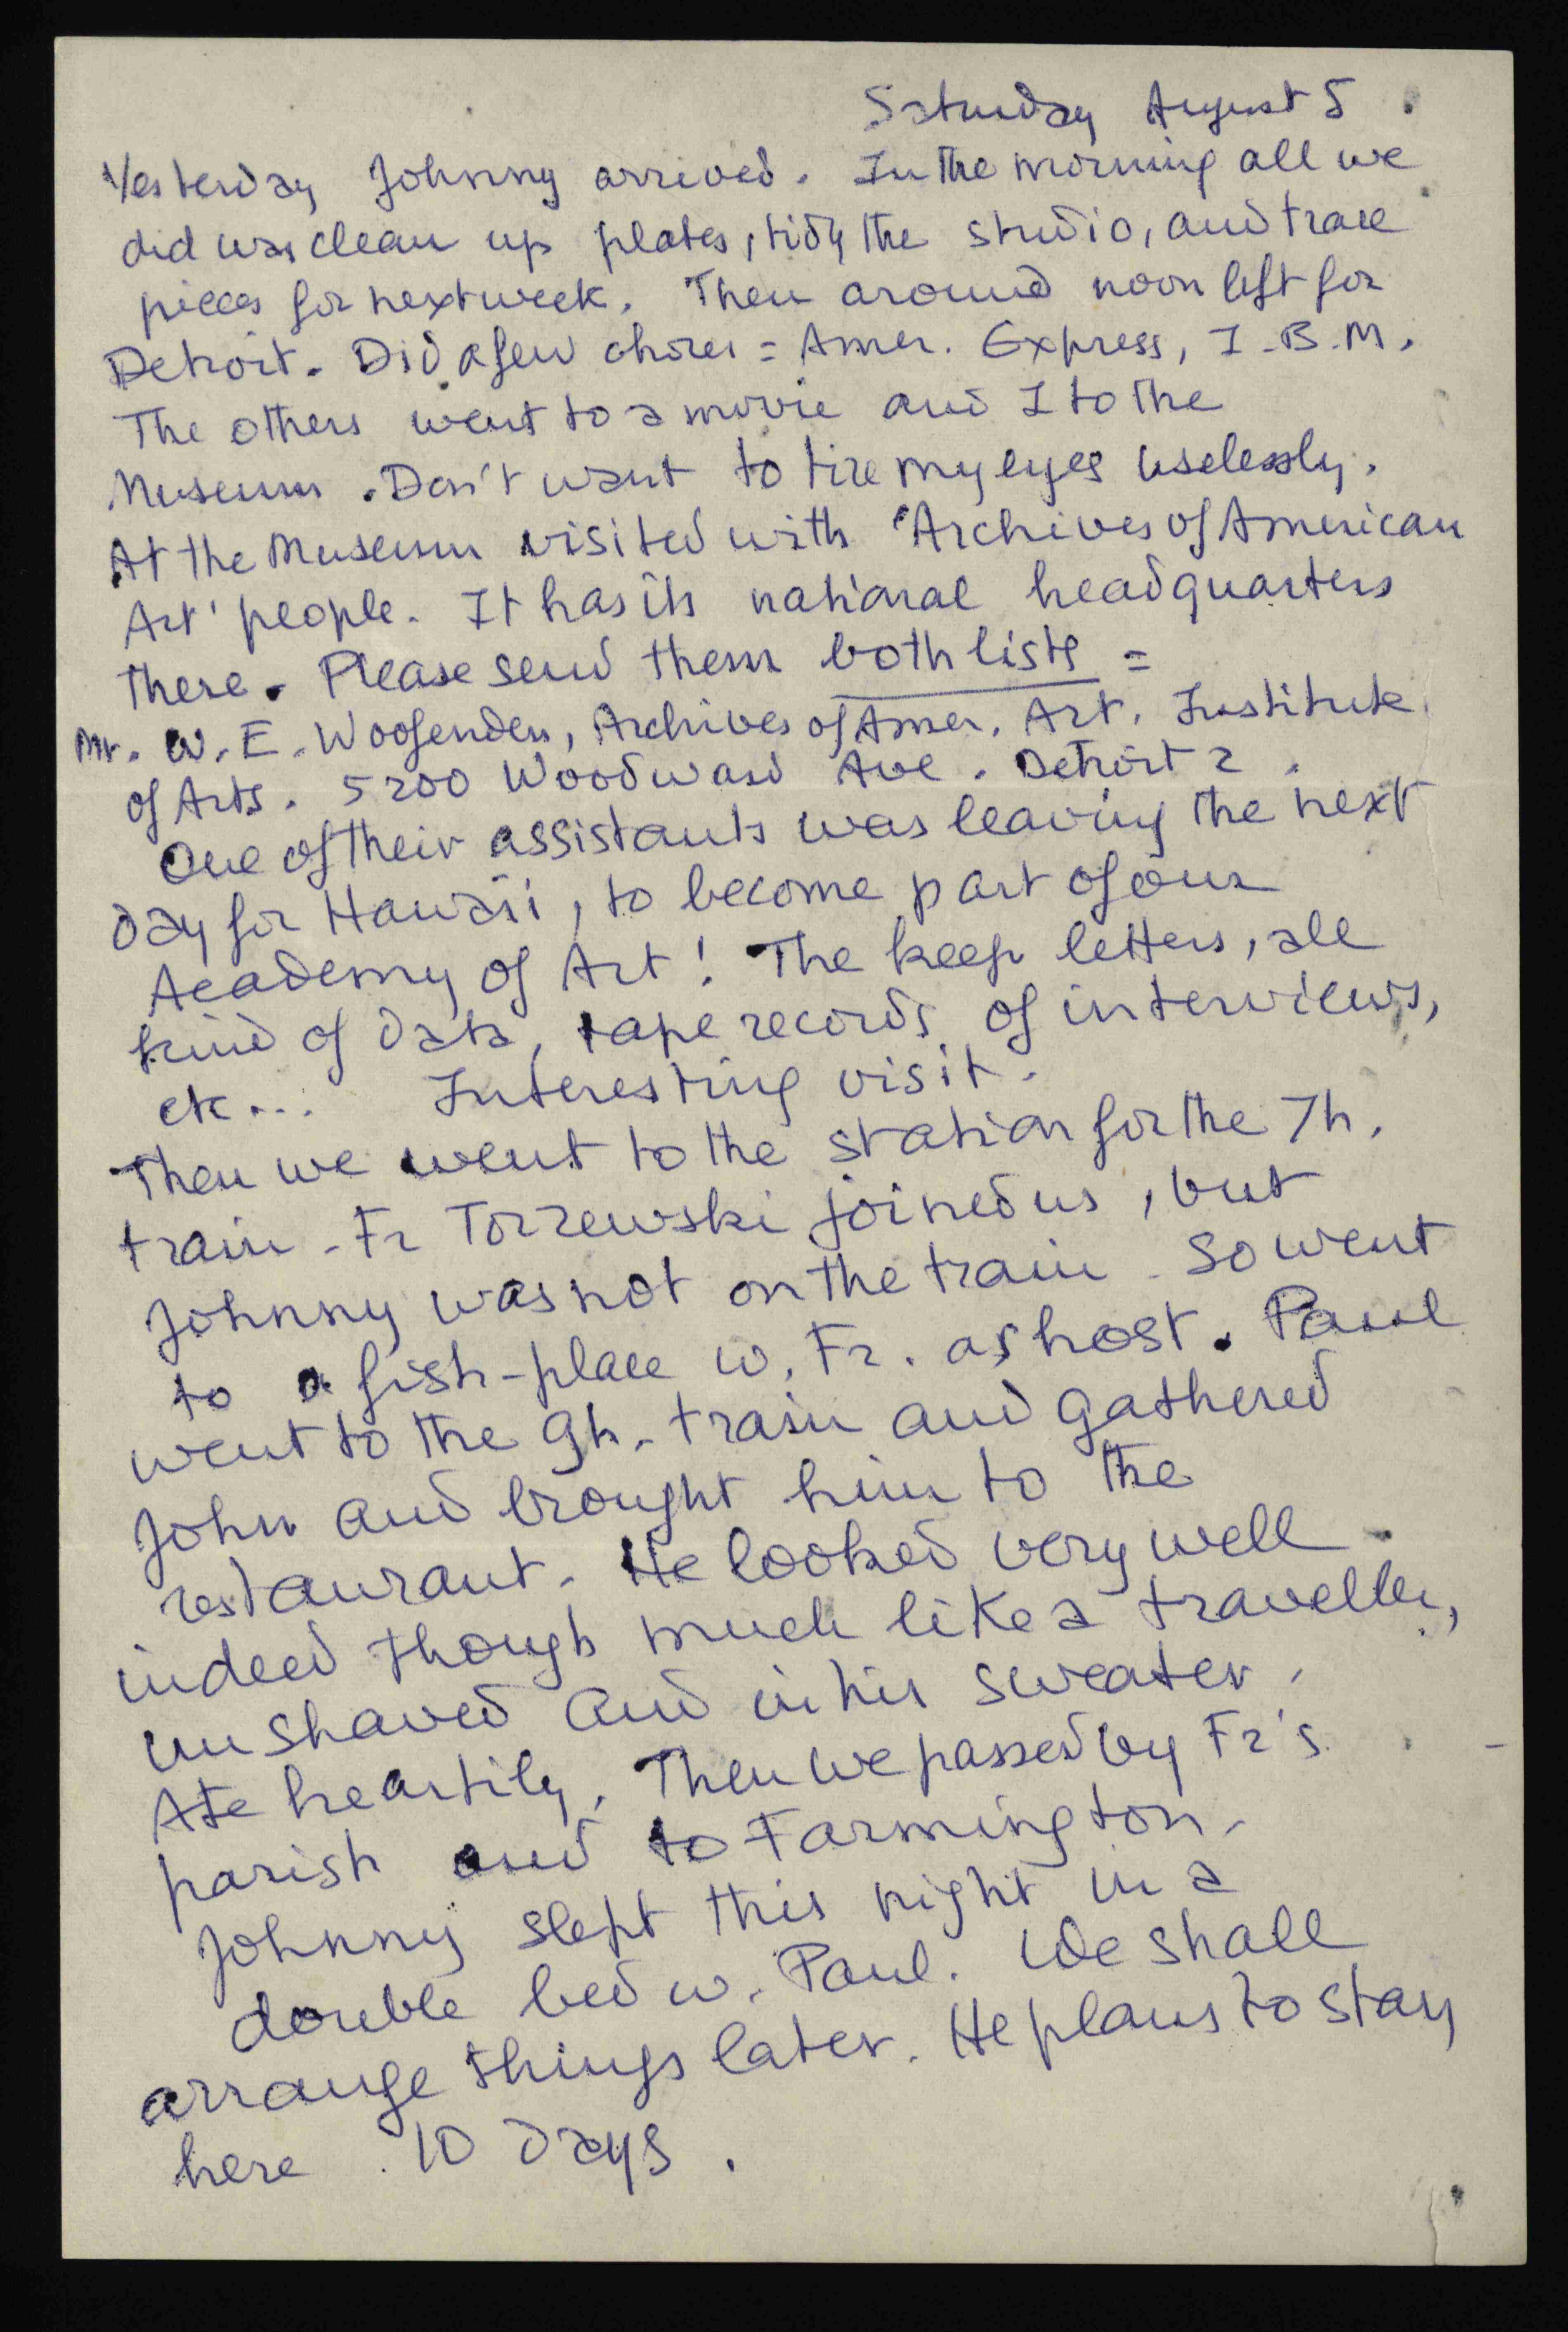 Saturday August 5
Yesterday Johnny arrived. In the morning all we
did was clean up plates, tidy the studio, and trace
pieces for next week. Then around noon left for
Detroit. Did a few chores = Amer. Express, I.B.M.
The others went to a movie and I to the
Museum. Don't want to tire my eyes uselessly.
At the Museum visited with 'Archives of American
Art' people. It has its national headquarters
there. Please send them both lists =
Mr. W. E. Woofenden, Archives of Amer. Art. Institute
of Arts. 5200 Woodward Ave. Detroit 2.
One of their assistants was leaving the next
day for Hawaii, to become part of our
Academy of Art! The keep letters, all
kind of data, tape records of interviews,
etc... Interesting visit.
Then we went to the station for the 7h.
train - Fr Torzewski joined us, but
Johnny was not on the train. So went
to a fish-place w. Fr. as host. Paul
went to the 9h. train and gathered
John and brought him to the
restaurant. He looked very well
indeed though much like a traveller,
unshaved and in his sweater.
Ate heartily. Then we passed by Fr's
parish and to Farmington.
Johnny slept this night in a
double bed w. Paul. We shall
arrange things later. He plans to stay
here 10 days.